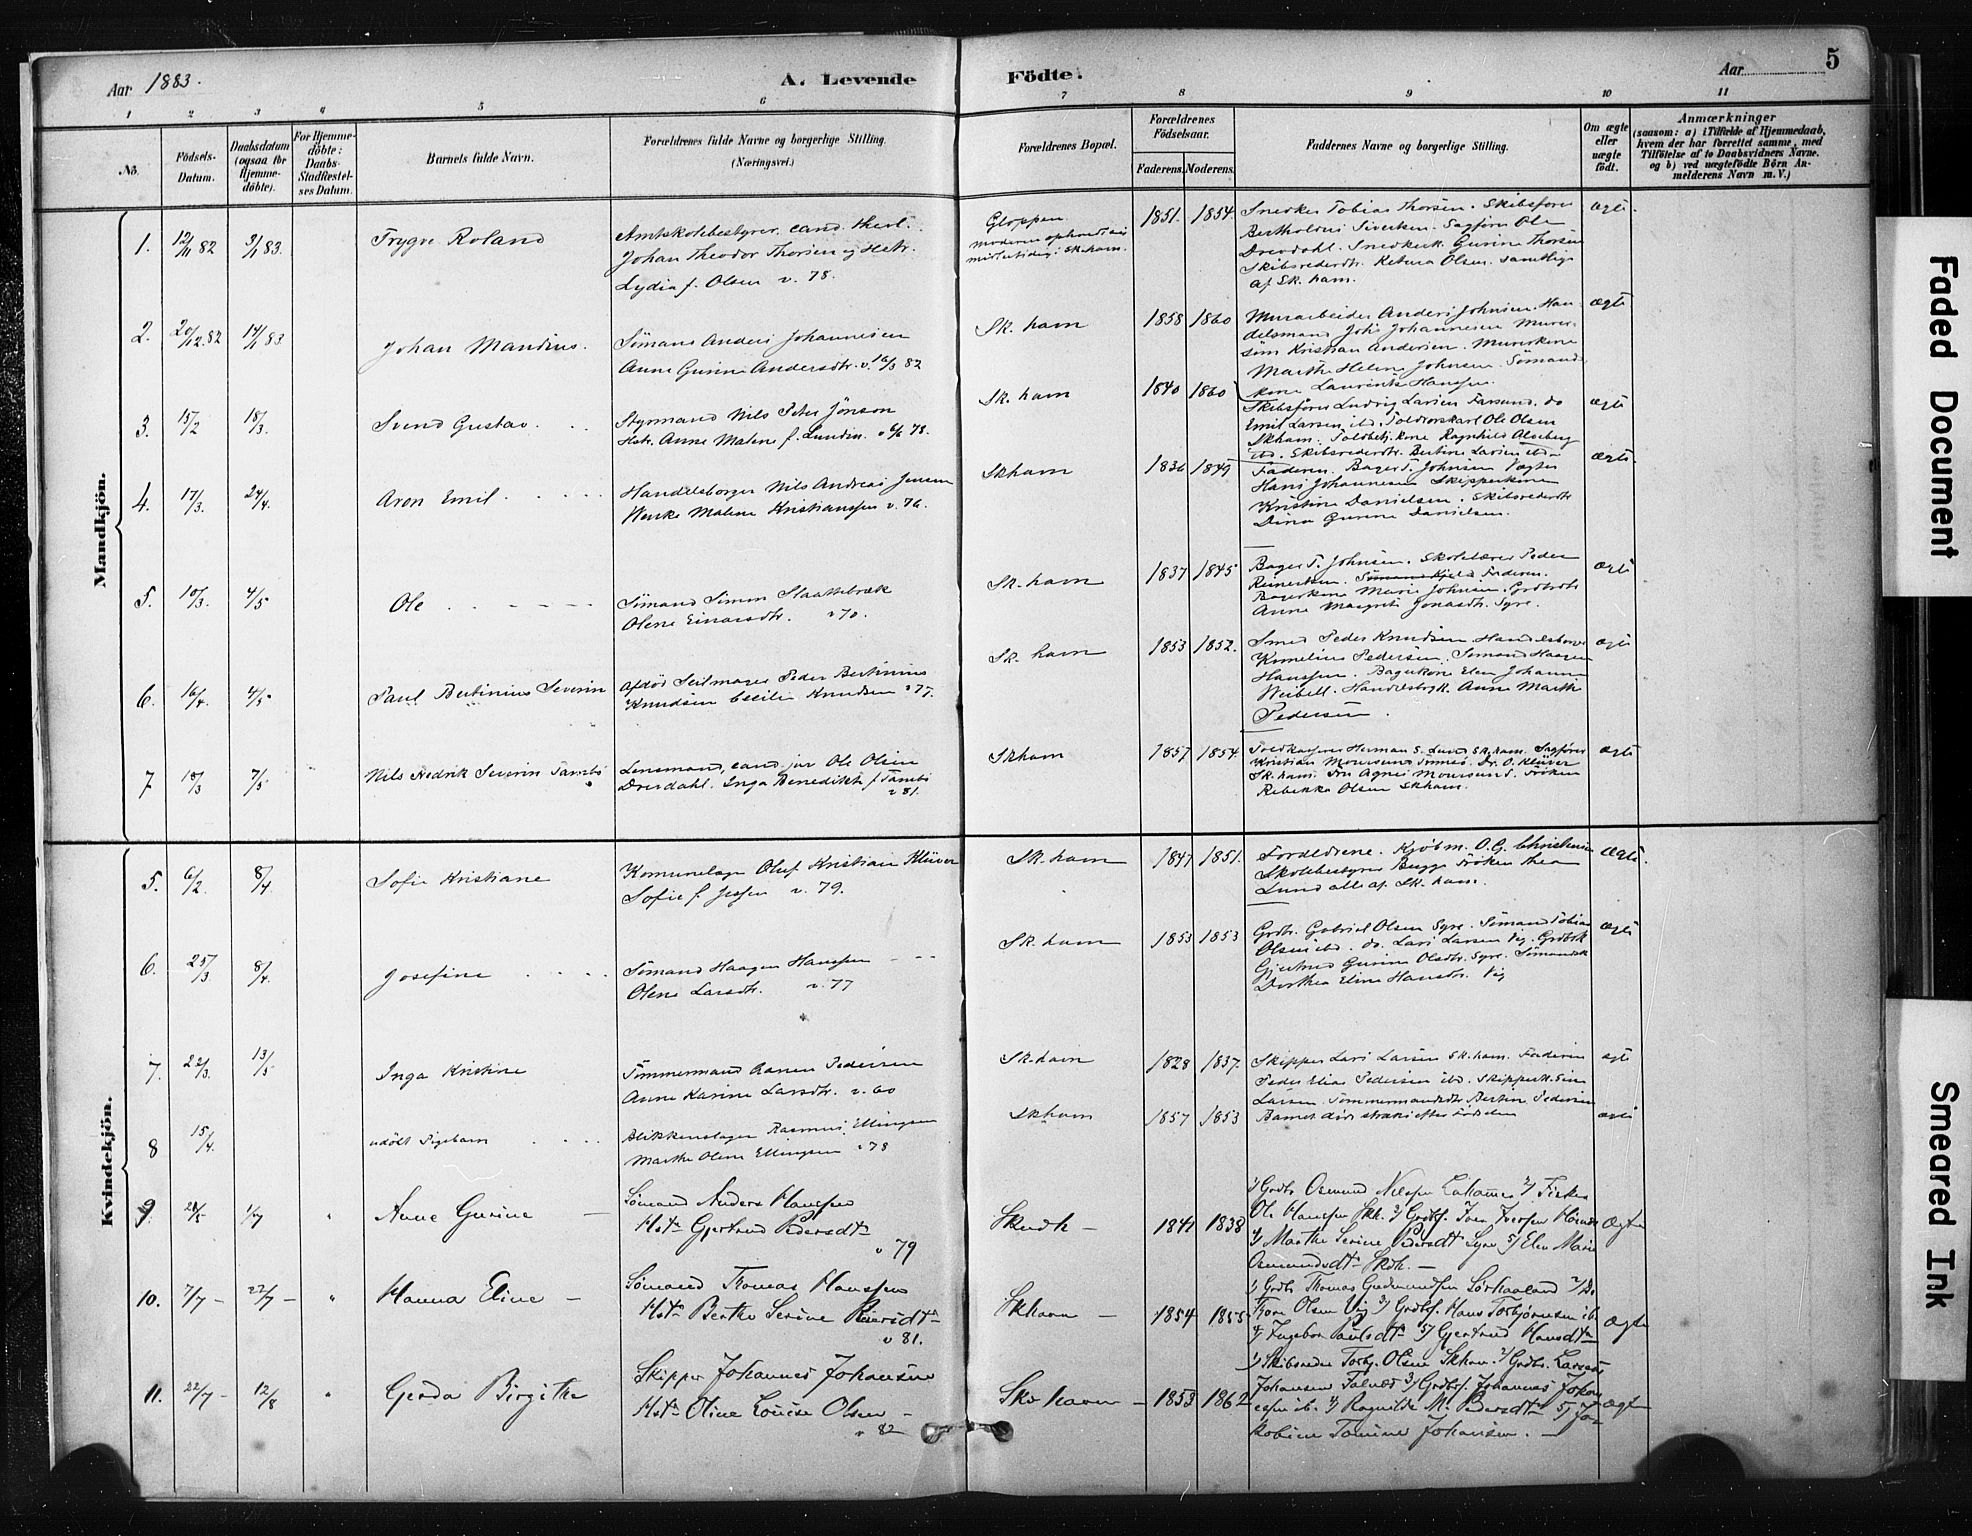 Aar 1883.
A. Levende
Födte.
Aar
5
1 2 3 4 5 6 7 8 9 10 11
No.
Födsels-Datum.
Daabsdatum (ogsaa for Hjemme-döbte).
For Hjemme-döbte: Daabs-Stadfæstel-ses Datum.
Barnets fulde Navn.
Forældrenes fulde Navne og borgerlige Stilling. (Næringsvei.)
Forældrenes Bopæl.
Forældrenes Födselsaar.
Faderens. Moderens.
Faddernes Navne og borgerlige Stilling.
Om ægte eller uægte födt.
Anmærkninger
(saasom: a) i Tilfælde af Hjemmedaab,
hvem der har forrettet samme, med
Tilföielse af to Daabsvidners Navne.
og b) ved uægtefödte Börn An-
melderens Navn m. V.)
Mandkjön.
1. 12/11 82 3/1 83. Trygve Roland
Amtskolebestyrer, cand. theol.
Johan Theodor Thorsen og Hstr.
Lydia f. Olsen v. 78.
Gloppen
moderen
midlertidig i Sk.ham.
1851. 1854.
Snedker Tobias Thorsen. Skibsfører
Bertholdus Sivertsen. Sagfører Ole
Drevdahl. Snedkerk. Gurine Thorsen
Skibsrederdtr. Ketura Olsen. samtlige
af Sk. ham.
ægte.
2. 20/12 82 14/1 83 Johan Mandius.
Sömand Anders Johannesen
Anne Gurine Andersdtr. v. 16/3 82
Sk. ham 1858 1860
Murarbeider Anders Johnsen. Han-
delsmand Johs Johannesen Murer-
søn Kristian Andersen. Murerkone
Marthe Helene Johnsen. Sömands
kone Laurentse Hanssen.
ægte
3. 15/2 18/3. Svend Gustav.
Styrmand Nils Peter Jönson
Hstr. Anne Malene f. Lundin. v 6/6 78.
Sk. ham 1840 1860
Skibsfører Ludvig Larsen Farsund. do
Emil Larsen ibd. Toldrorskarl Ole Olsen
Skham. Toldbetj.kone Ragnhild Alseberg
ibd. Skibsrederdtr. Bertine Larsen ibd.
ægte
4. 17/3. 24/4. Aron Emil
Handelsborger Nils Andreas Jensen
Wenke Malene Kristianssen v. 76.
Skham 1836 1849
Faderen. Bager T. Johnsen Vægter
Hans Johannesen Skipperkone
Kristine Danielsen. Skibsrederdtr
Dina Gurine Danielsen.
ægte.
5. 10/3. 4/5 Ole
Sömand Simon Slaattebræk
Olene Einarsdtr. v 70.
Sk. ham 1837 1845
Bager T. Johnsen. Skolelærer Peder
Reinertsen. Sömand Kjeld Faderen.
Bagerkone Marie Johnsen. Grdbrdtr
Anne Margrete Jonasdtr. Syre.
ægte
6. 16/4. 4/5 Paul Bertinius Severin
Afdöd Seilmager Peder Bertinius
Knudsen Cecilie Knudsen v 77.
Sk. ham 1853 1852.
Smed Peder Knudsen Handelsborger
Kornelius Pedersen. Sömand Haagen
Hanssen. Bagerkone Elen Johanne
Weibell. Handelsbrgk. Anne Marthe
Pedersen.
ægte
7 18/3 7/5 Nils Fredrik Severin Tambs
Lensmand, cand. jur Ole Olsen
Drevdahl. Inga Benedikte f. Tambs
v 81.
Skham 1857 1854.
Toldkasserer Herman S. Lund Sk.ham. Sagfører
Kristian Moursund Tromsö. Dr. O. Klüver
Sk.ham. Fru Agnes Moursund. Fröken
Rebekka Olsen Skham.
ægte
Kvindekjön.
5. 6/2. 8/4. Sofie Kristiane
Kommunelæge Oluf Kristian Klüver
Sofie f. Jessen v. 79.
Sk. ham 1847 1851.
Forældrene. Kjöbm. O. G. Christensen
Skolebestyrer Bugge Fröken Thea
Lund alle af Sk. ham.
ægte.
6. 25/3 8/4. Josefine
Sömand Haagen Hanssen
Olene Larsdtr. v. 77
Sk. ham 1853 1853
Grdbr. Gabriel Olsen Syre. Sömand Tobias
Olsen ibd. do. Lars Larsen Vig. Grdbrk
Gjertrud Gurine Olsdtr. Syre. Sömandsk
Dorthea Eline Hansdtr. Vig
ægte
7. 22/3. 13/5 Inga Kristine
Tömmermand Aanen Pedersen
Anne Karine Larsdtr. v. 60
Sk.ham 1828 1837.
Skipper Lars Larsen Sk.ham. Faderen
Peder Elias Pedersen ibd. Skipperk. Sine
Larsen. Tömmermandsdtr Bertine Pedersen
ægte
8 15/4. udöbt Pigebarn
Blikkenslager Rasmus Ellingsen
Marthe Olene Ellingsen v 78
Skham 1857 1853
Barnet död straks efter Födselen
ægte
9. 28/5 1/7 " Anne Gurine
Sömand Anders Hanssen
Hstr Gjertrud Pedersdtr
v 79
Skudh 1841 1838
1/ Grdbr Osmund Nilssen Lahamer 2/ Fisker
Ole Hanssen Skh. 3/ Grdbf. Iver Iversen
4/ Marthe Serine Pedersdtr Syre 5/ Elen Marie
Osmundsdtr Skdh.
Ægte
10. 7/7 22/7 " Hanna Eline
Sömand Thomas Hanssen
Hstr Berthe Serine Peersdtr
v 81.
Skhavn 1854 1855
1/ Grdbr Thomas Gudmundsen Sörhaaland 2/ Do
Tjorn Olsen Vig 3/ Grdbrf. Hans Torbjörnsen ib.
4/ Ingebor Paulsdtr 5/ Gjertrud Hansdtr
Ægte
11. 22/7 12/8 " Gerda Birgithe
Skipper Johannes Johansen
Hstr Oline Louise Olsen
v 82
Skdhavn 1853 1862
1/ Skibsreder Torbj. Olsen Skhavn. 2/ Grdbr. Larsen
Johansen Falnæs 3/ Grdbrf. Johannes Johan-
essen ib. 4/ Ragnilde M. Pedersdtr 5/ Ja-
kobine Tomine Johansen.
Ægte
Faded Document
Smeared Ink